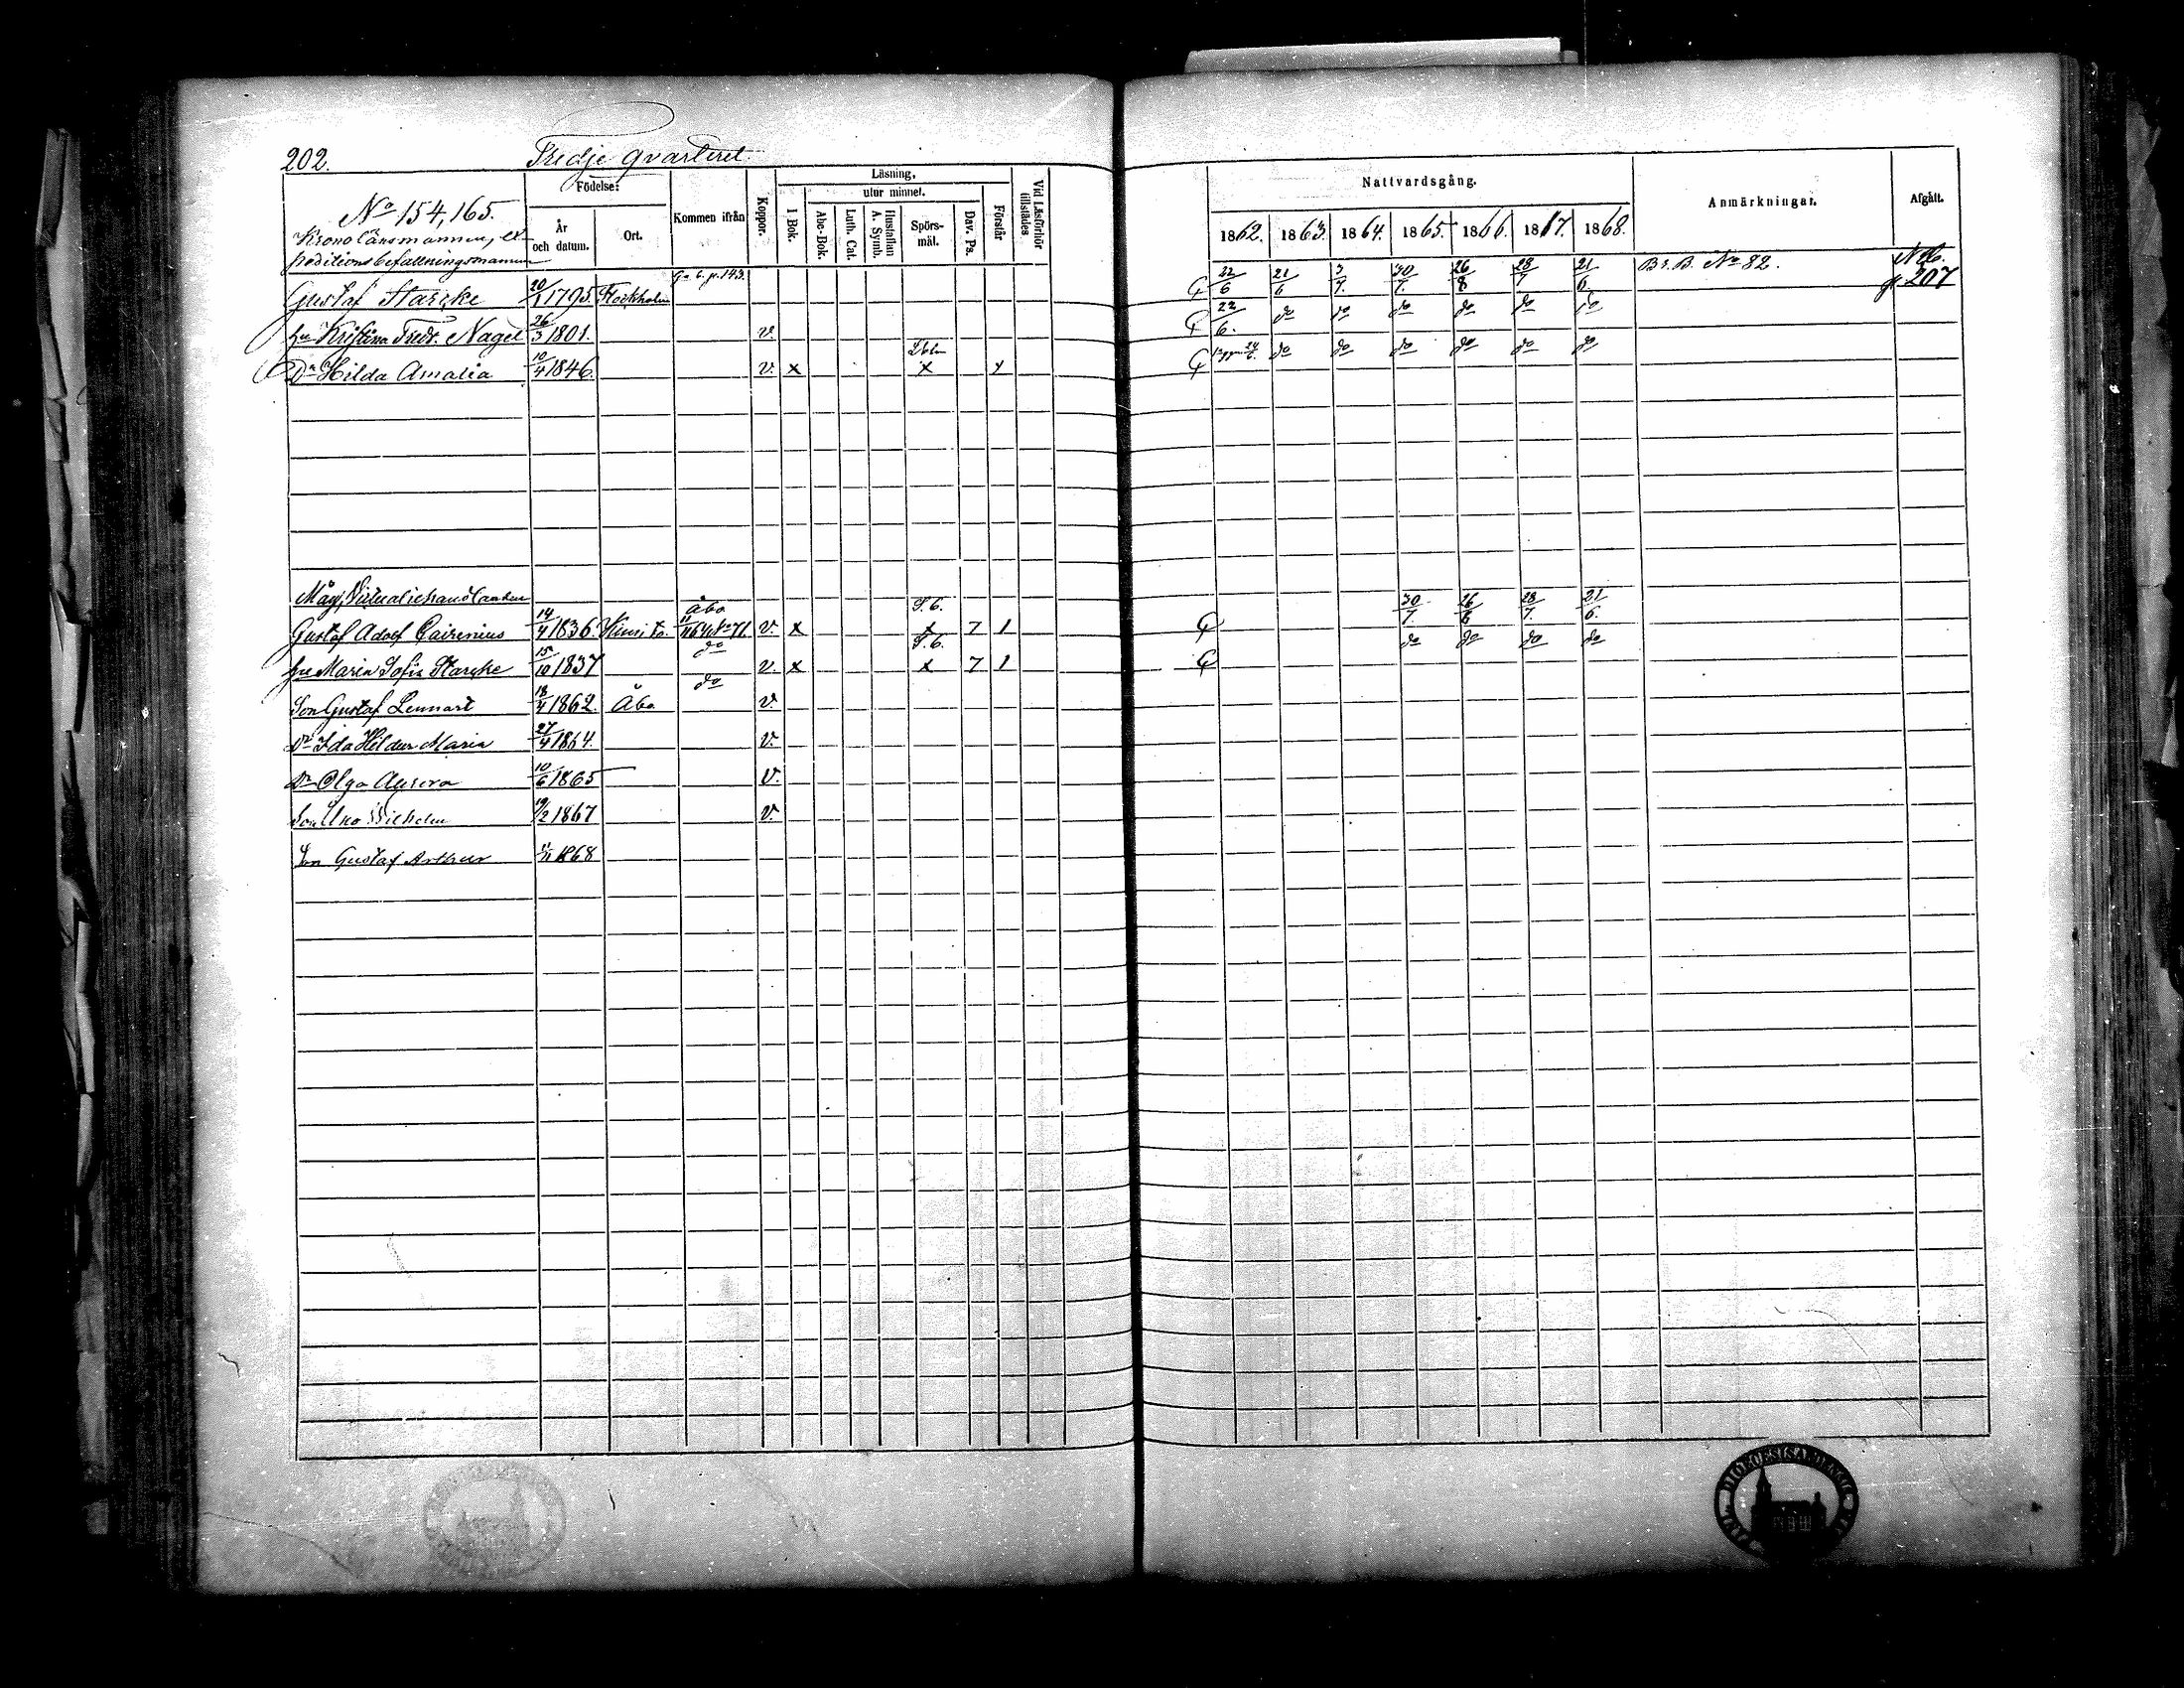 202. Tredje qvarteret
Födelse: Kommen ifrån Koppor. Läsning, Vid Läsförhör tillstädes
utur minnet.
År och datum. Ort. I Bok. Abc-Bok. Luth. Cat. Hustaflan A. Symb. Spörs-mål. Dav. Ps. Förstår
No 154, 165.
Kronolänsmannen, ex-
peditionsbefallningsmannen G. b. p. 143.
Gustaf Starcke 20/1 1795. Stockholm
hu Kristina Fredr. Nagel 26/3 1801. v.
Dr Hilda Amalia 10/4 1846. v. x x
Mag, Victualiehandlanden Åbo S. b.
Gustaf Adolf Cairenius 14/4 1836. Kimito. 11/11 64 No 71 v. x x 7 1
hu Maria Sofia Starcke 15/10 1837 do v. x S. b. x 7 1
Son Gustaf Lennart 18/4 1862. Åbo do v.
Dr Ida Hildur Maria 27/4 1864. v.
Dr Olga Aurora 10/6 1865 v.
Son Uno Wilhelm 19/2 1867 v.
Son Gustaf Arthur 11/11 1868
Nattvardsgång. Anmärkningar. Afgått.
1862. 1863. 1864. 1865. 1866. 1867. 1868.
22/6 21/6 3/7. 30/7. 26/8 28/7 21/6 Br. B. No 82. N. b. p. 207
22/6. do do do do do do
24/6. do do do do do do
30/7. 26/8 28/7. 21/6.
do do do do